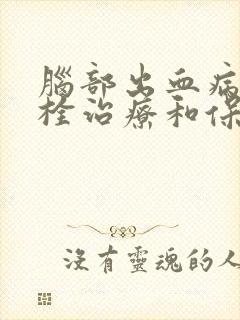 腦部出血病
栓治療和保
沒有靈魂的人